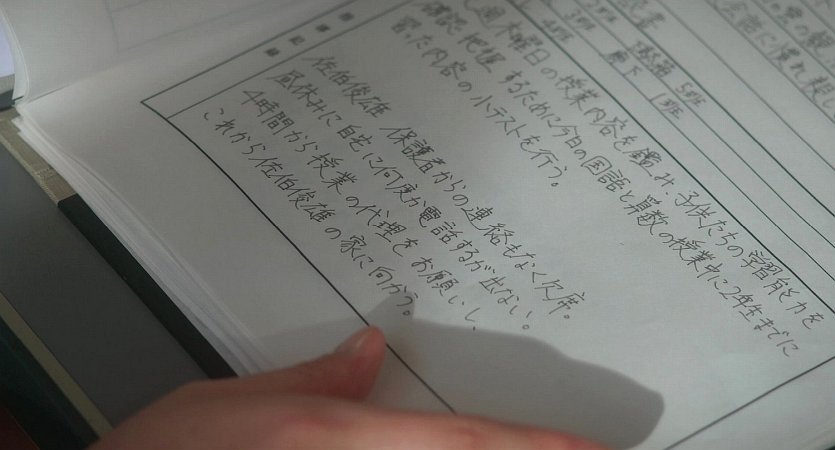 会話に慣れ親し
5班
3班 廊下 1班
週木曜日の授業内容を鑑み、子供たちの学習能力を
確認、把握するために今日の国語と算数の授業中に2年生までに
習った内容の小テストを行う。
佐伯俊雄 保護者からの連絡もなく欠席。
昼休みに自宅に何度か電話するが出ない。
4時間から授業の代理をお願いし、
これから佐伯俊雄の家に向かう。